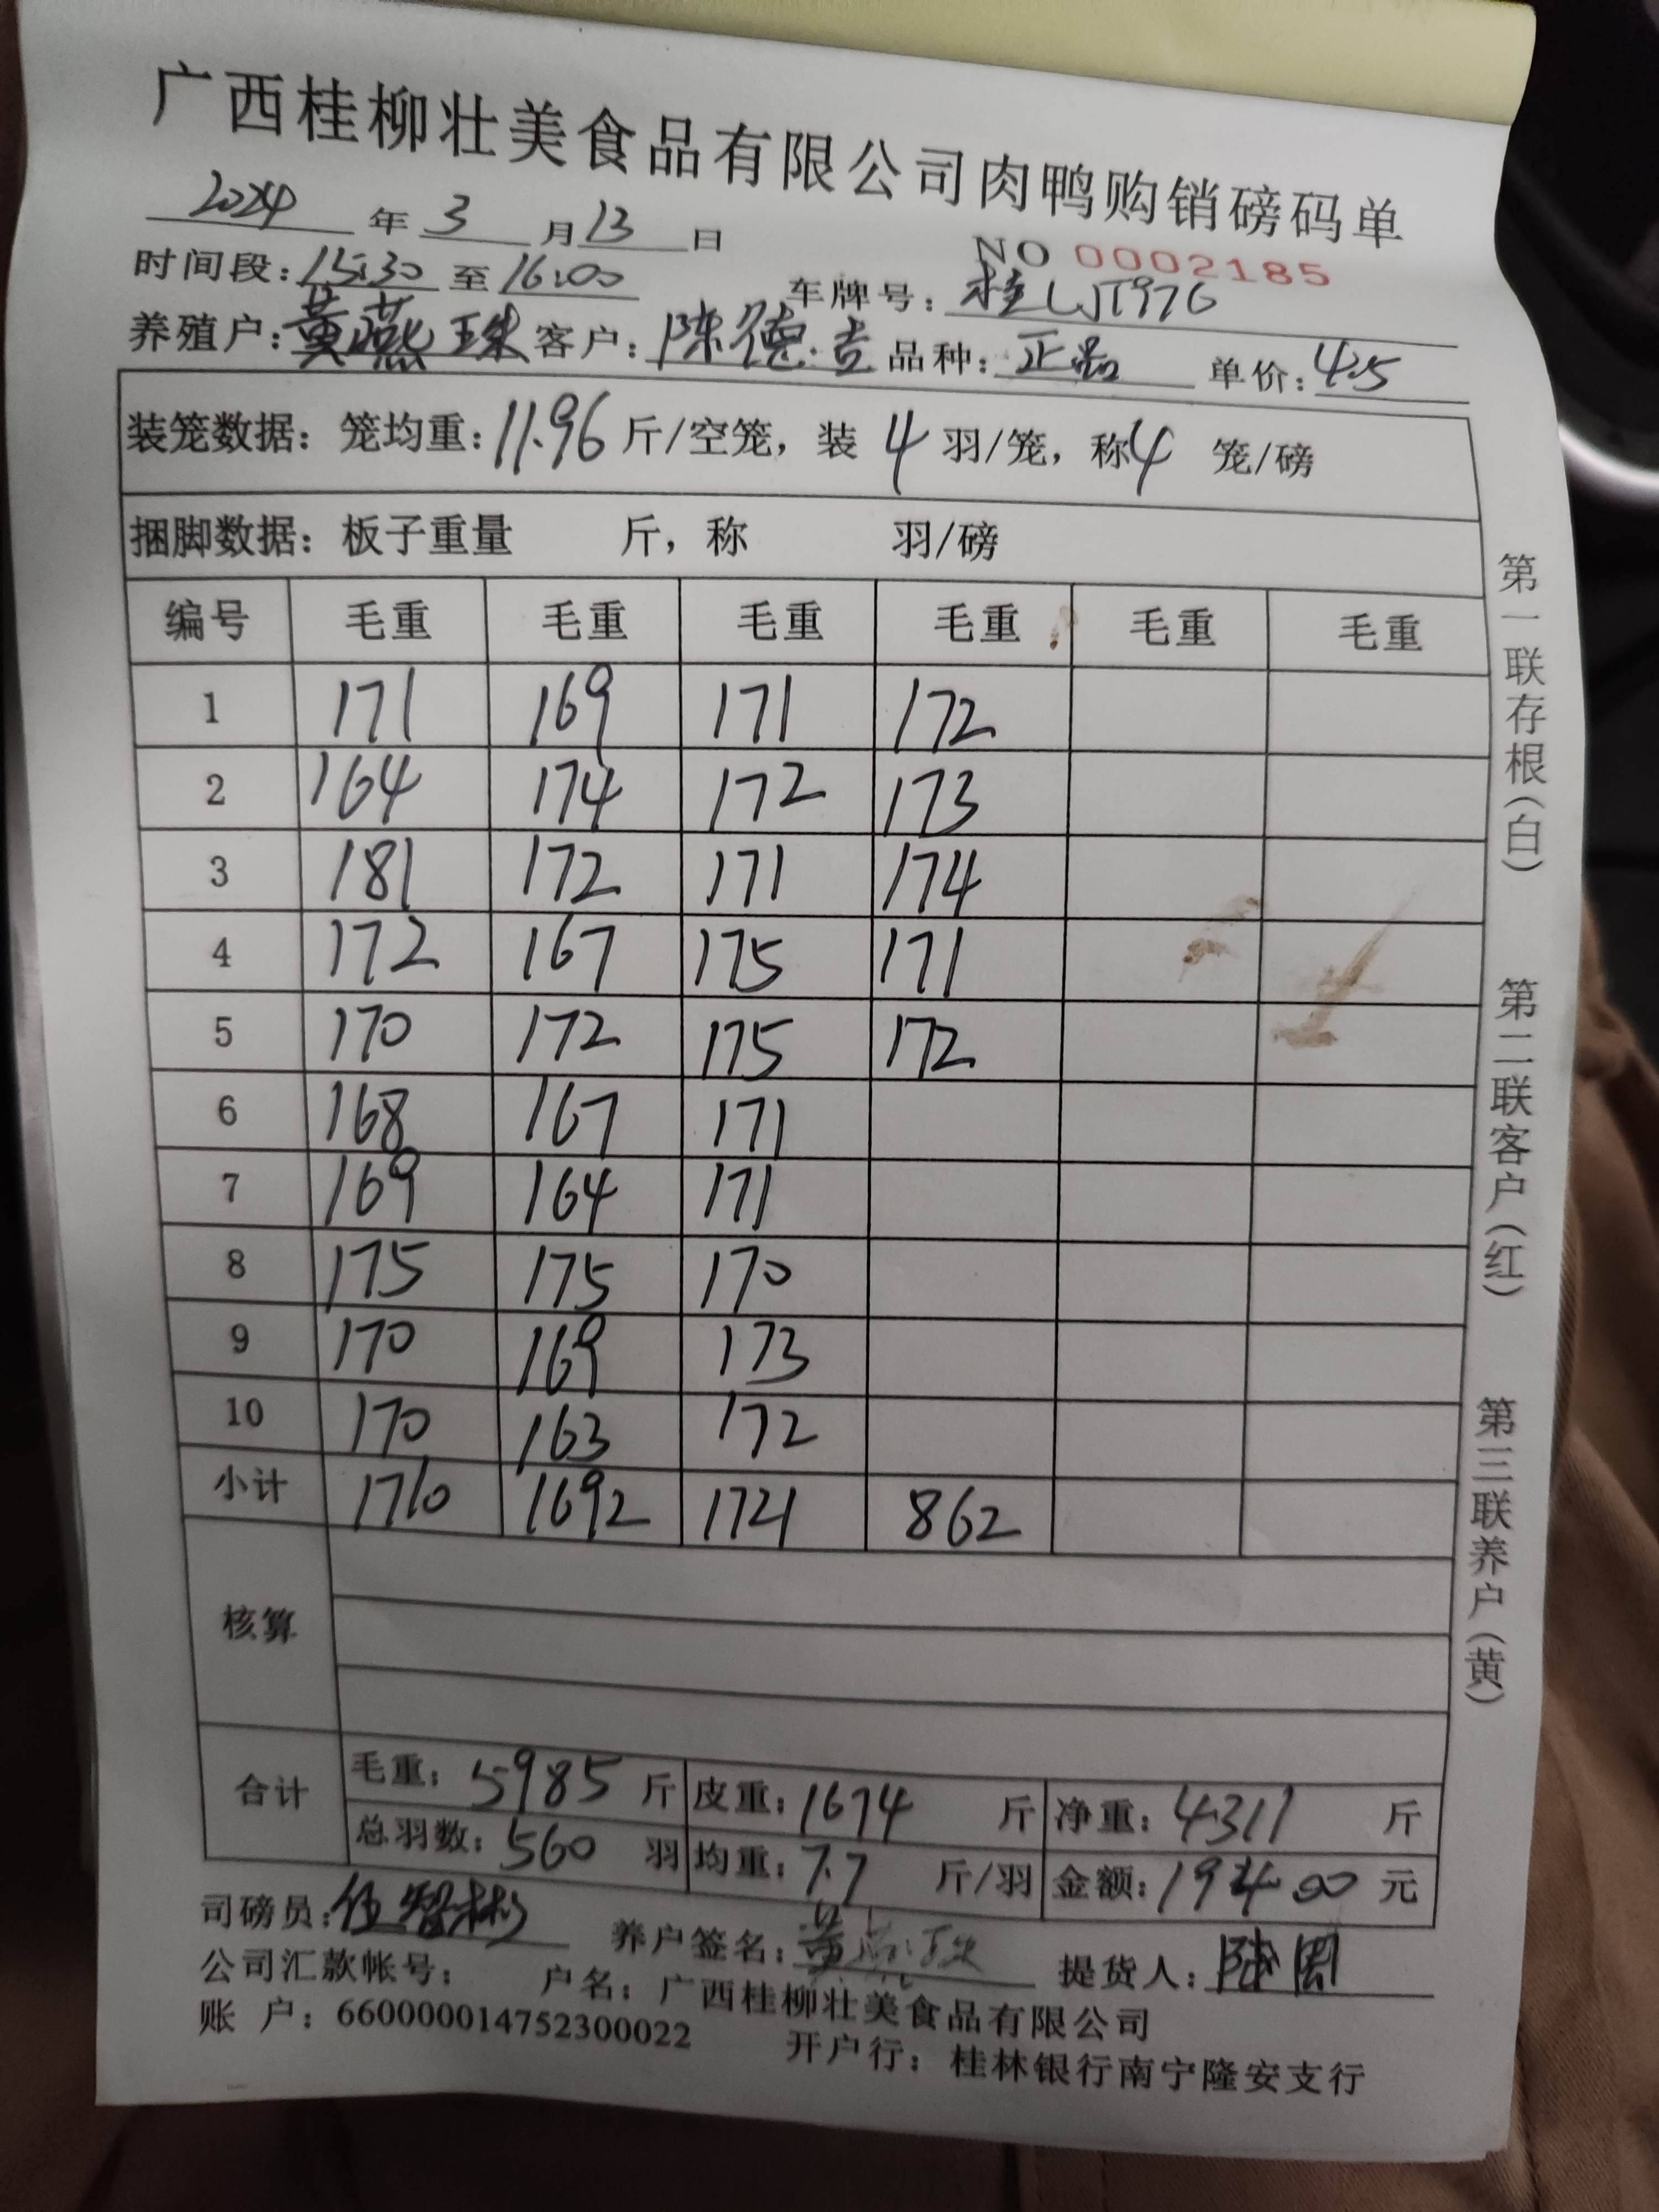 广西桂柳壮美食品有限公司肉鸭购销磅码单
2024 年 3 月 13 日
NO 0002185
时间段:15:30 至 16:00 车牌号:桂LJT976
养殖户:黄燕珠 客户:陈德吉 品种:正品 单价:4.5
装笼数据:笼均重:11.96 斤/空笼,装 4 羽/笼,称4 笼/磅
捆脚数据:板子重量 斤,称 羽/磅
编号 毛重 毛重 毛重 毛重 毛重 毛重
1 171 169 171 172
2 164 174 172 173
3 181 172 171 174
4 172 167 175 171
5 170 172 175 172
6 168 167 171
7 169 164 171
8 175 175 170
9 170 169 173
10 170 163 172
小计 1710 1692 1721 862
核算
合计 毛重:5985 斤 皮重:1674 斤 净重:4311 斤
总羽数:560 羽 均重:7.7 斤/羽 金额:19400 元
司磅员:伍智彬 养户签名:黄燕珠 提货人:
公司汇款帐号: 户名:广西桂柳壮美食品有限公司
账 户:660000014752300022 开户行:桂林银行南宁隆安支行
第一联存根(白)
第二联客户(红)
第三联养户(黄)